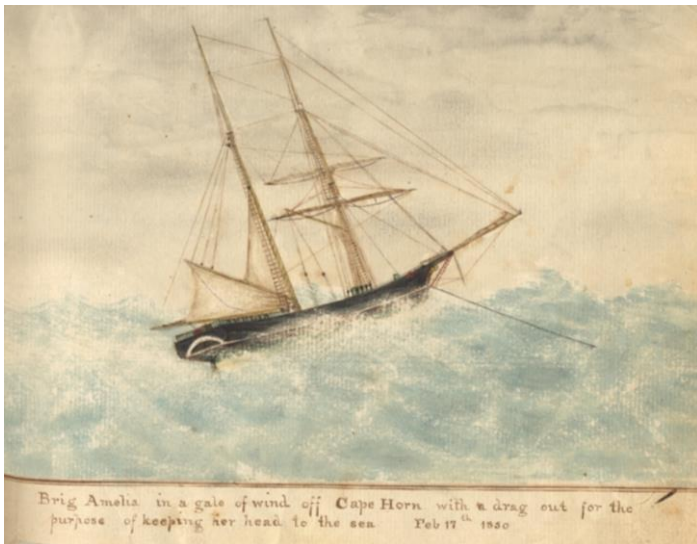 Brig Amelia in a gale of wind off Cape Horn with a drag out for the
purpose of keeping her head to the sea Feb 17th